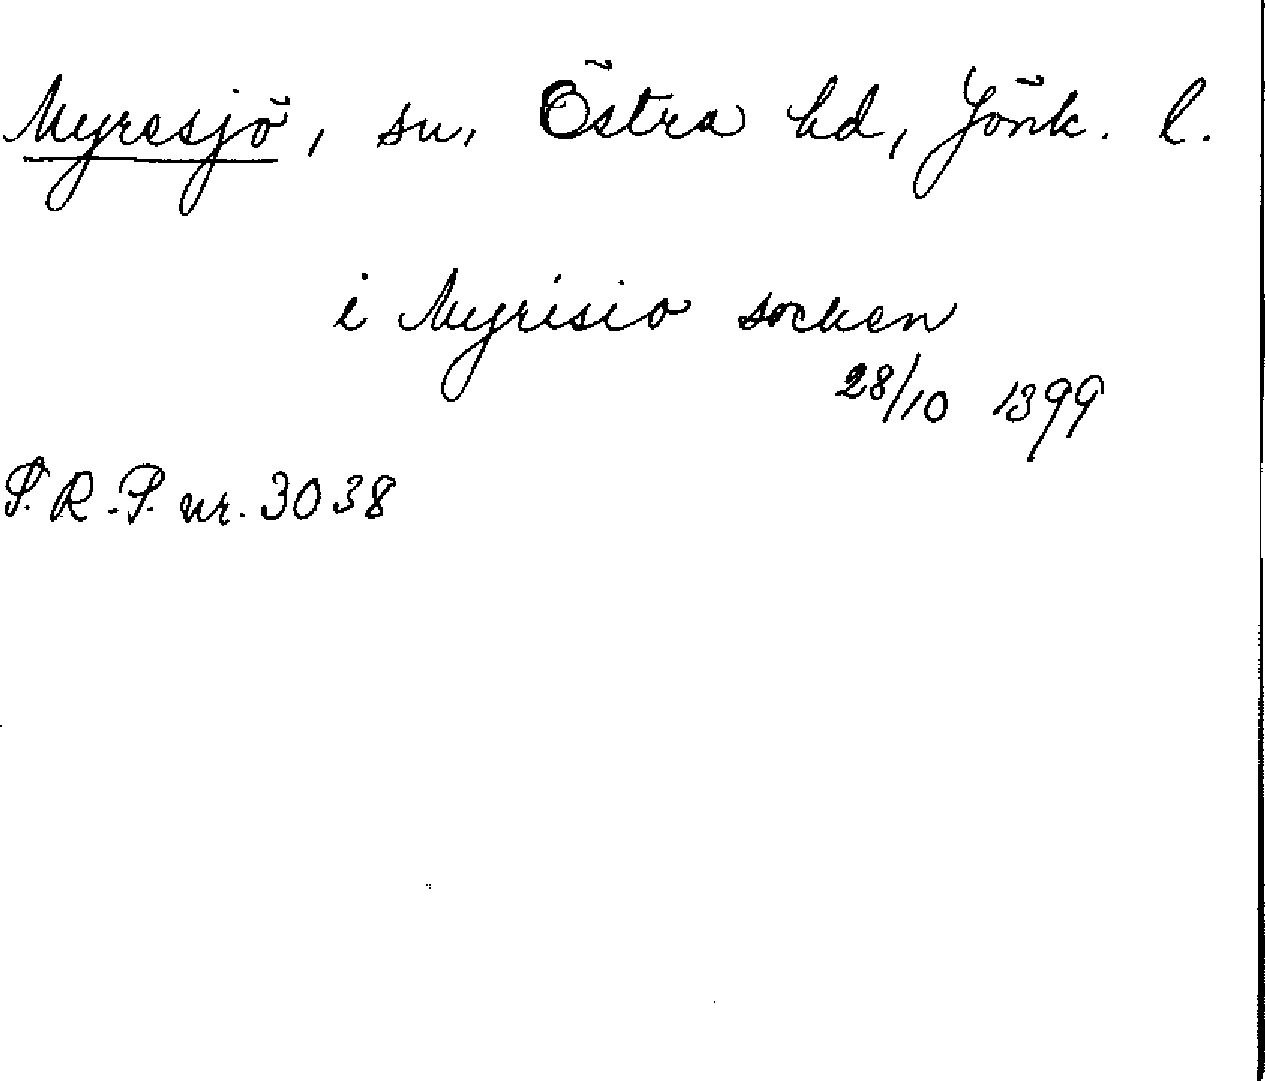 Myresjö, sn, Östra hd, Jönk. l.
i Myrisio socken
28/10 1399
S. R.-P. nr. 3038